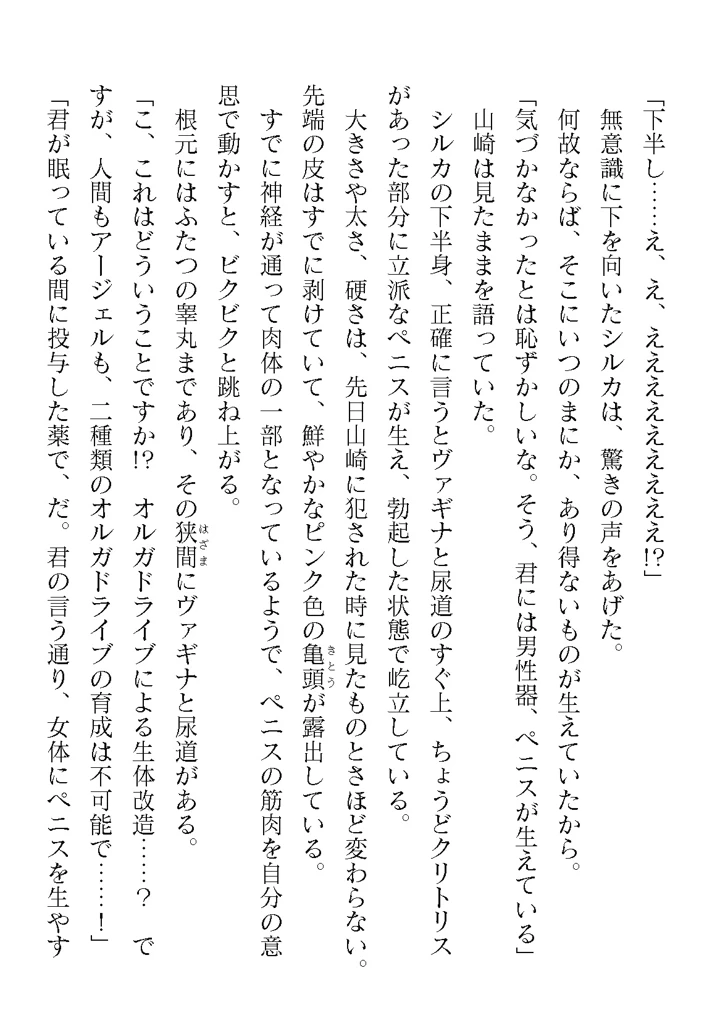 「下半し……え、え、ええええええええ!?」
無意識に下を向いたシルカは、驚きの声をあげた。
何故ならば、そこにいつのまにか、あり得ないものが生えていたから。
「気づかなかったとは恥ずかしいな。そう、君には男性器、ペニスが生えている」
山崎は見たままを語っていた。
シルカの下半身、正確に言うとヴァギナと尿道のすぐ上、ちょうどクリトリス
があった部分に立派なペニスが生え、勃起した状態で屹立している。
大きさや太さ、硬さは、先日山崎に犯された時に見たものとさほど変わらない。
先端の皮はすでに剥けていて、鮮やかなピンク色の亀頭が露出している。
きとう
すでに神経が通って肉体の一部となっているようで、ペニスの筋肉を自分の意
思で動かすと、ビクビクと跳ね上がる。
根元にはふたつの睾丸まであり、その狭間にヴァギナと尿道がある。
はざま
「こ、これはどういうことですか!?　オルガドライブによる生体改造……？　で
すが、人間もアージェルも、二種類のオルガドライブの育成は不可能で……！」
「君が眠っている間に投与した薬で、だ。君の言う通り、女体にペニスを生やす